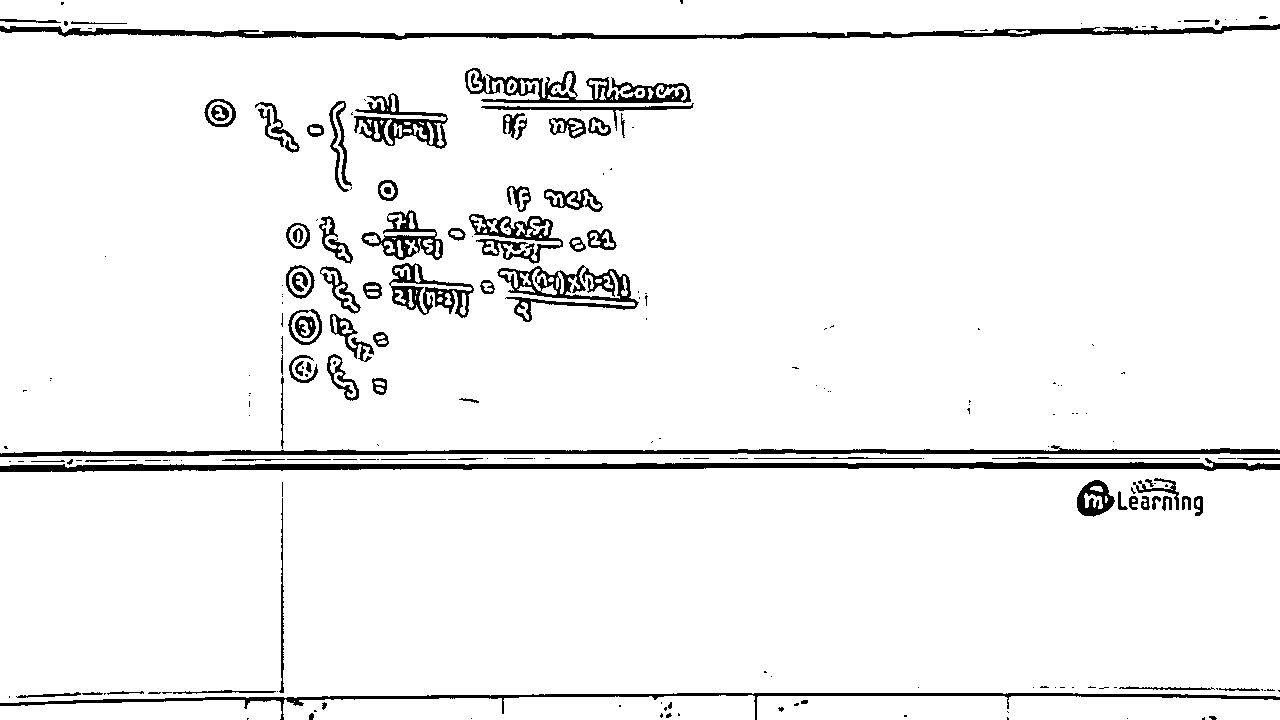 Binomial Theorem
② ⁿCᵣ = { n! / r!(n-r)! if n≥r
0 if n<r
① ⁷C₂ = 7! / 2!×5! = 7×6×5! / 2×5! = 21
② ⁿC₂ = n! / 2!(n-2)! = n×(n-1)×(n-2)! / 2
③ ¹²C₁₇ =
④ C₃ =
m Learning